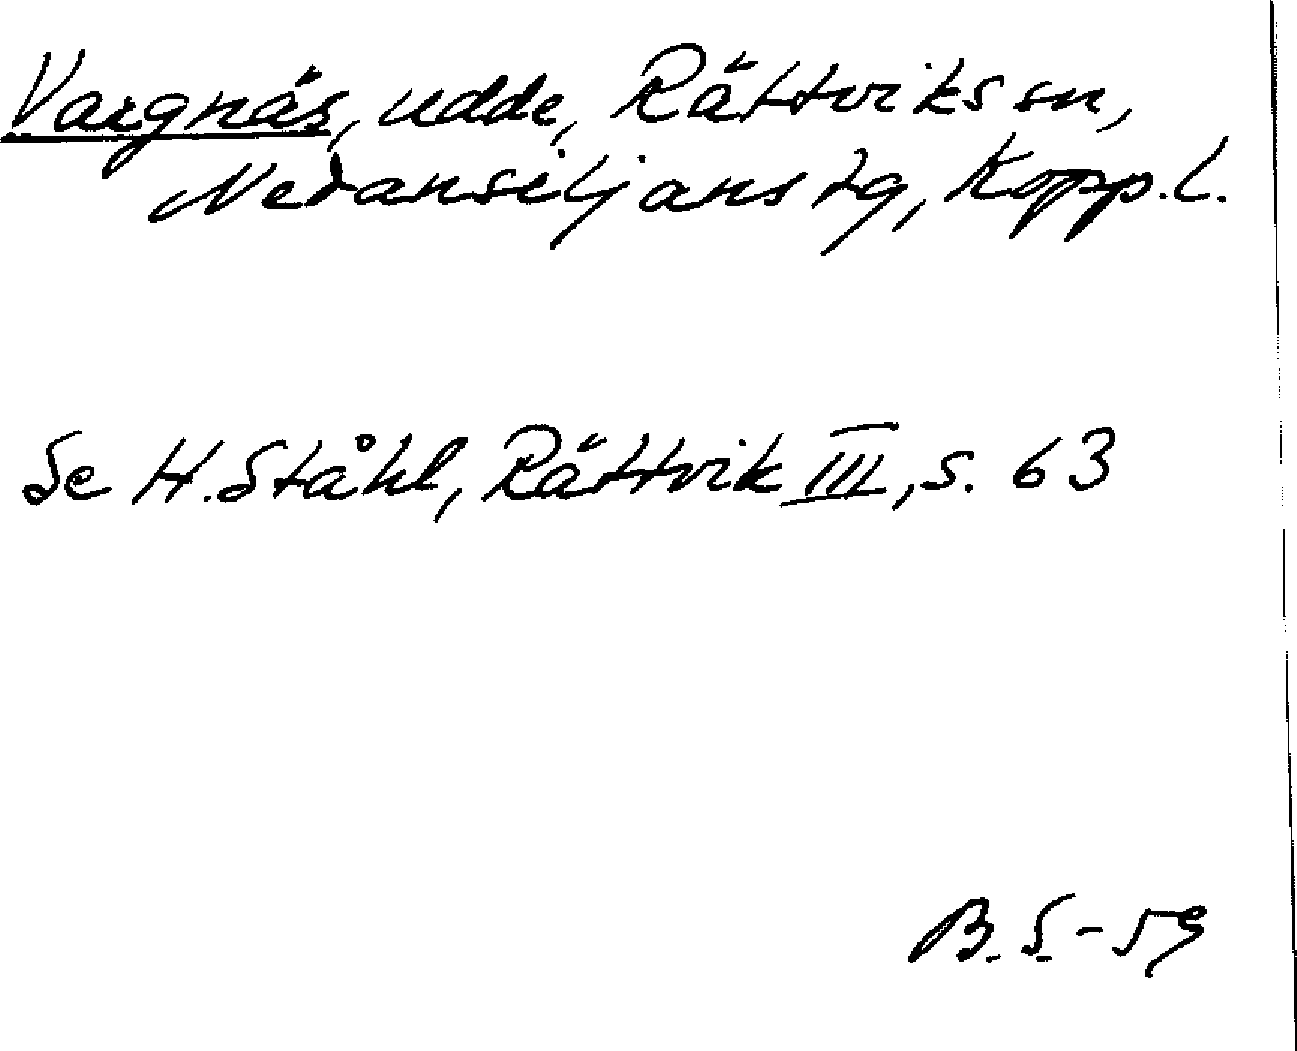 Vargnäs, udde, Rättviks sn,
Nedansiljans tg, Kopp. l.
Se H. Ståhl, Rättvik III, s. 63
B. S. - 59